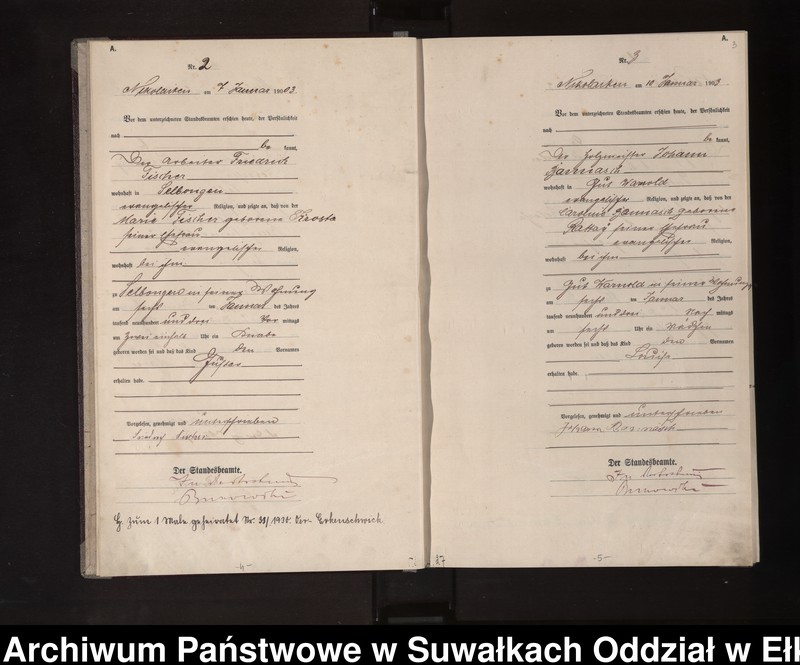 A.
Nr. 2
Nikolaiken am 7 Januar 1903
Vor dem unterzeichneten Standesbeamten erschien heute, der Persönlichkeit
nach
be kannt,
Der Arbeiter Friedrich
Fischer
wohnhaft in Selbongen
evangelischer Religion, und zeigte an, daß von der
Marie Fischer geborene Krosta
seiner Ehefrau
evangelischer Religion,
wohnhaft bei ihm
zu Selbongen in seiner Wohnung
am sechs ten Januar des Jahres
tausend neunhundert und drei Vor mittags
um zwei einhalb Uhr ein Knabe
geboren worden sei und daß das Kind den Vornamen
Gustav
erhalten habe.
Vorgelesen, genehmigt und unterschrieben
Friedrich Fischer
Der Standesbeamte.
In Vertretung
G. zum 1 Male geheiratet Nr. 38/1930. Erkenschwick
-4-
A.
3
Nr. 3
Nikolaiken am 10 Januar 1903
Vor dem unterzeichneten Standesbeamten erschien heute, der Persönlichkeit
nach
be kannt,
Der Johann
wohnhaft in Gut
evangelischer Religion, und zeigte an, daß von der
Caroline geborene
seiner Ehefrau
evangelischer Religion,
wohnhaft bei ihm
zu Gut in seiner Wohnung
am sechs ten Januar des Jahres
tausend neunhundert und drei Nach mittags
um sechs Uhr ein Mädchen
geboren worden sei und daß das Kind den Vornamen
Louise
erhalten habe.
Vorgelesen, genehmigt und unterschrieben
Johann
Der Standesbeamte.
In Vertretung
-5-
Archiwum Państwowe w Suwałkach Oddział w Eł